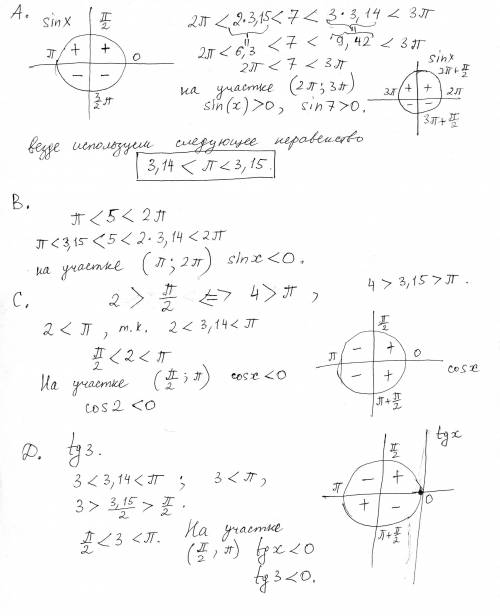 A. sin x π/2 2π < 2·3,15 < 7 < 3·3,14 < 3π
+ + 0
− −
3/2 π
2π < 6,3 < 7 < 9,42 < 3π
2π < 7 < 3π
на участке (2π; 3π)
sin(x) > 0, sin 7 > 0.
sin x
2π + π/2
3π + + 2π
− −
3π + π/2
везде используем следующее неравенство
3,14 < π < 3,15.
B.
π < 5 < 2π
π < 3,15 < 5 < 2·3,14 < 2π
на участке (π; 2π) sin x < 0.
C. 2 > π/2 <=> 4 > π, 4 > 3,15 > π.
2 < π, т.к. 2 < 3,14 < π
π/2 < 2 < π
На участке (π/2; π) cos x < 0
cos 2 < 0
π/2
π − + 0
− + cos x
π + π/2
D. tg 3.
3 < 3,14 < π; 3 < π,
3 > 3,15/2 > π/2.
π/2 < 3 < π. На участке
(π/2, π) tg x < 0
tg 3 < 0.
tg x
π/2
π − +
+ − 0
π + π/2